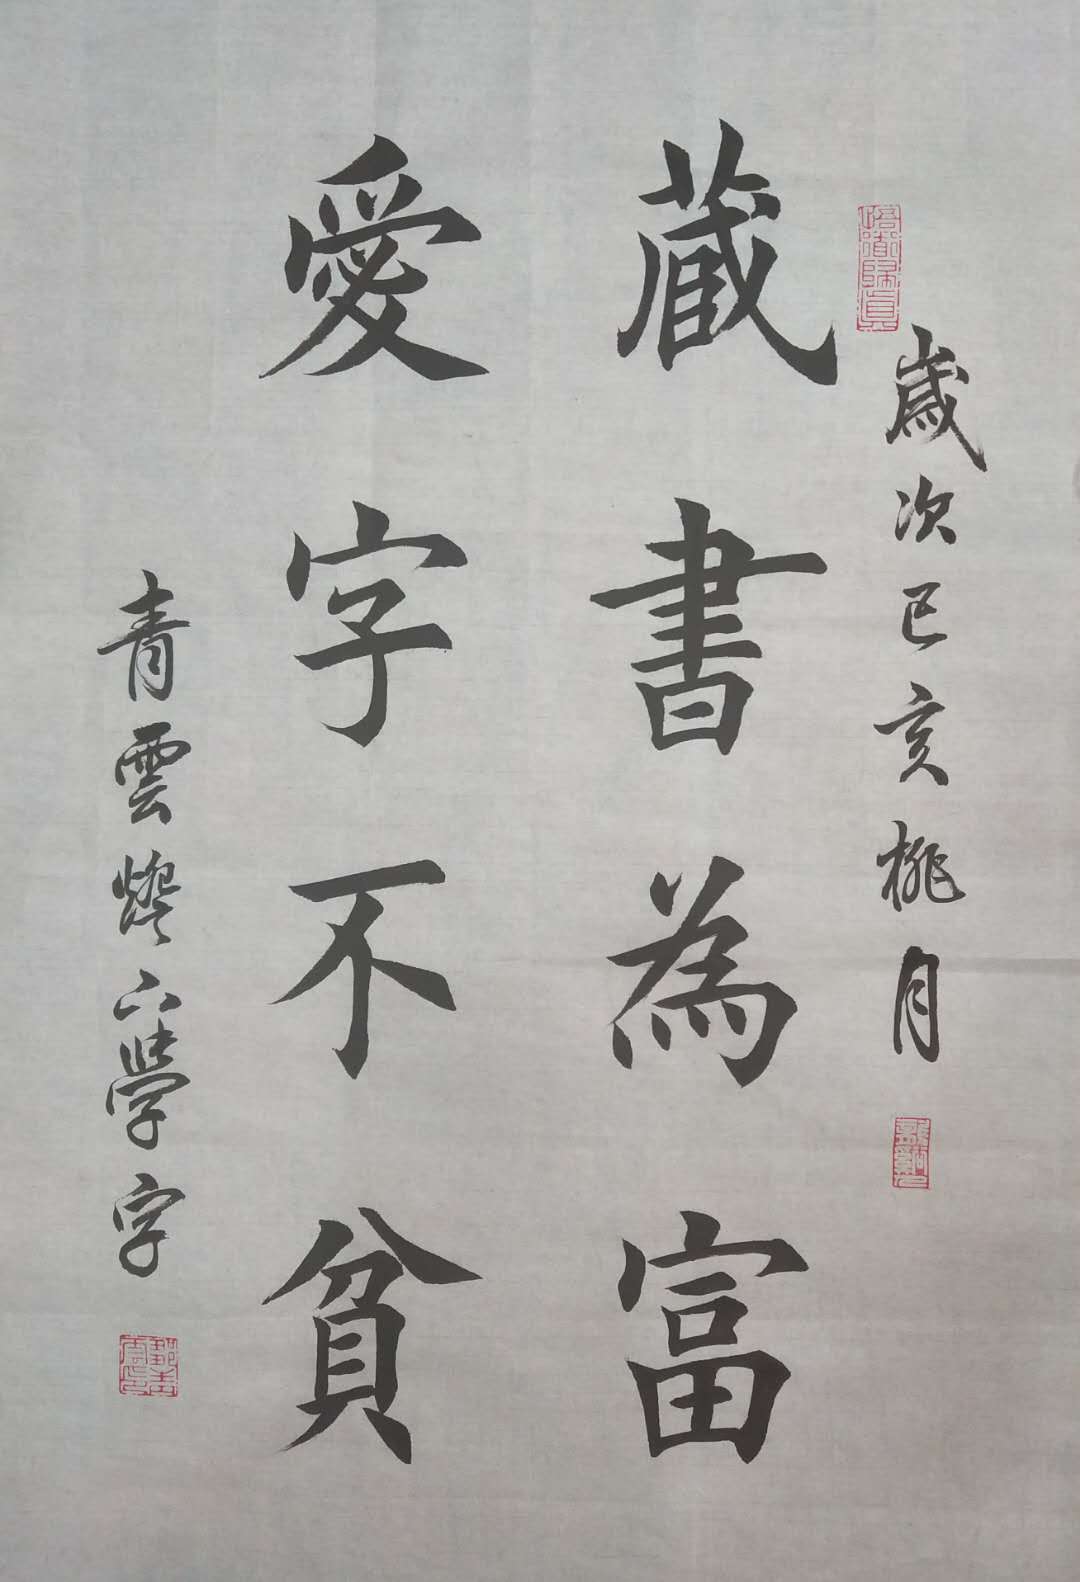 歲次己亥桃月
藏書為富
愛字不貧
青雲燈下學字